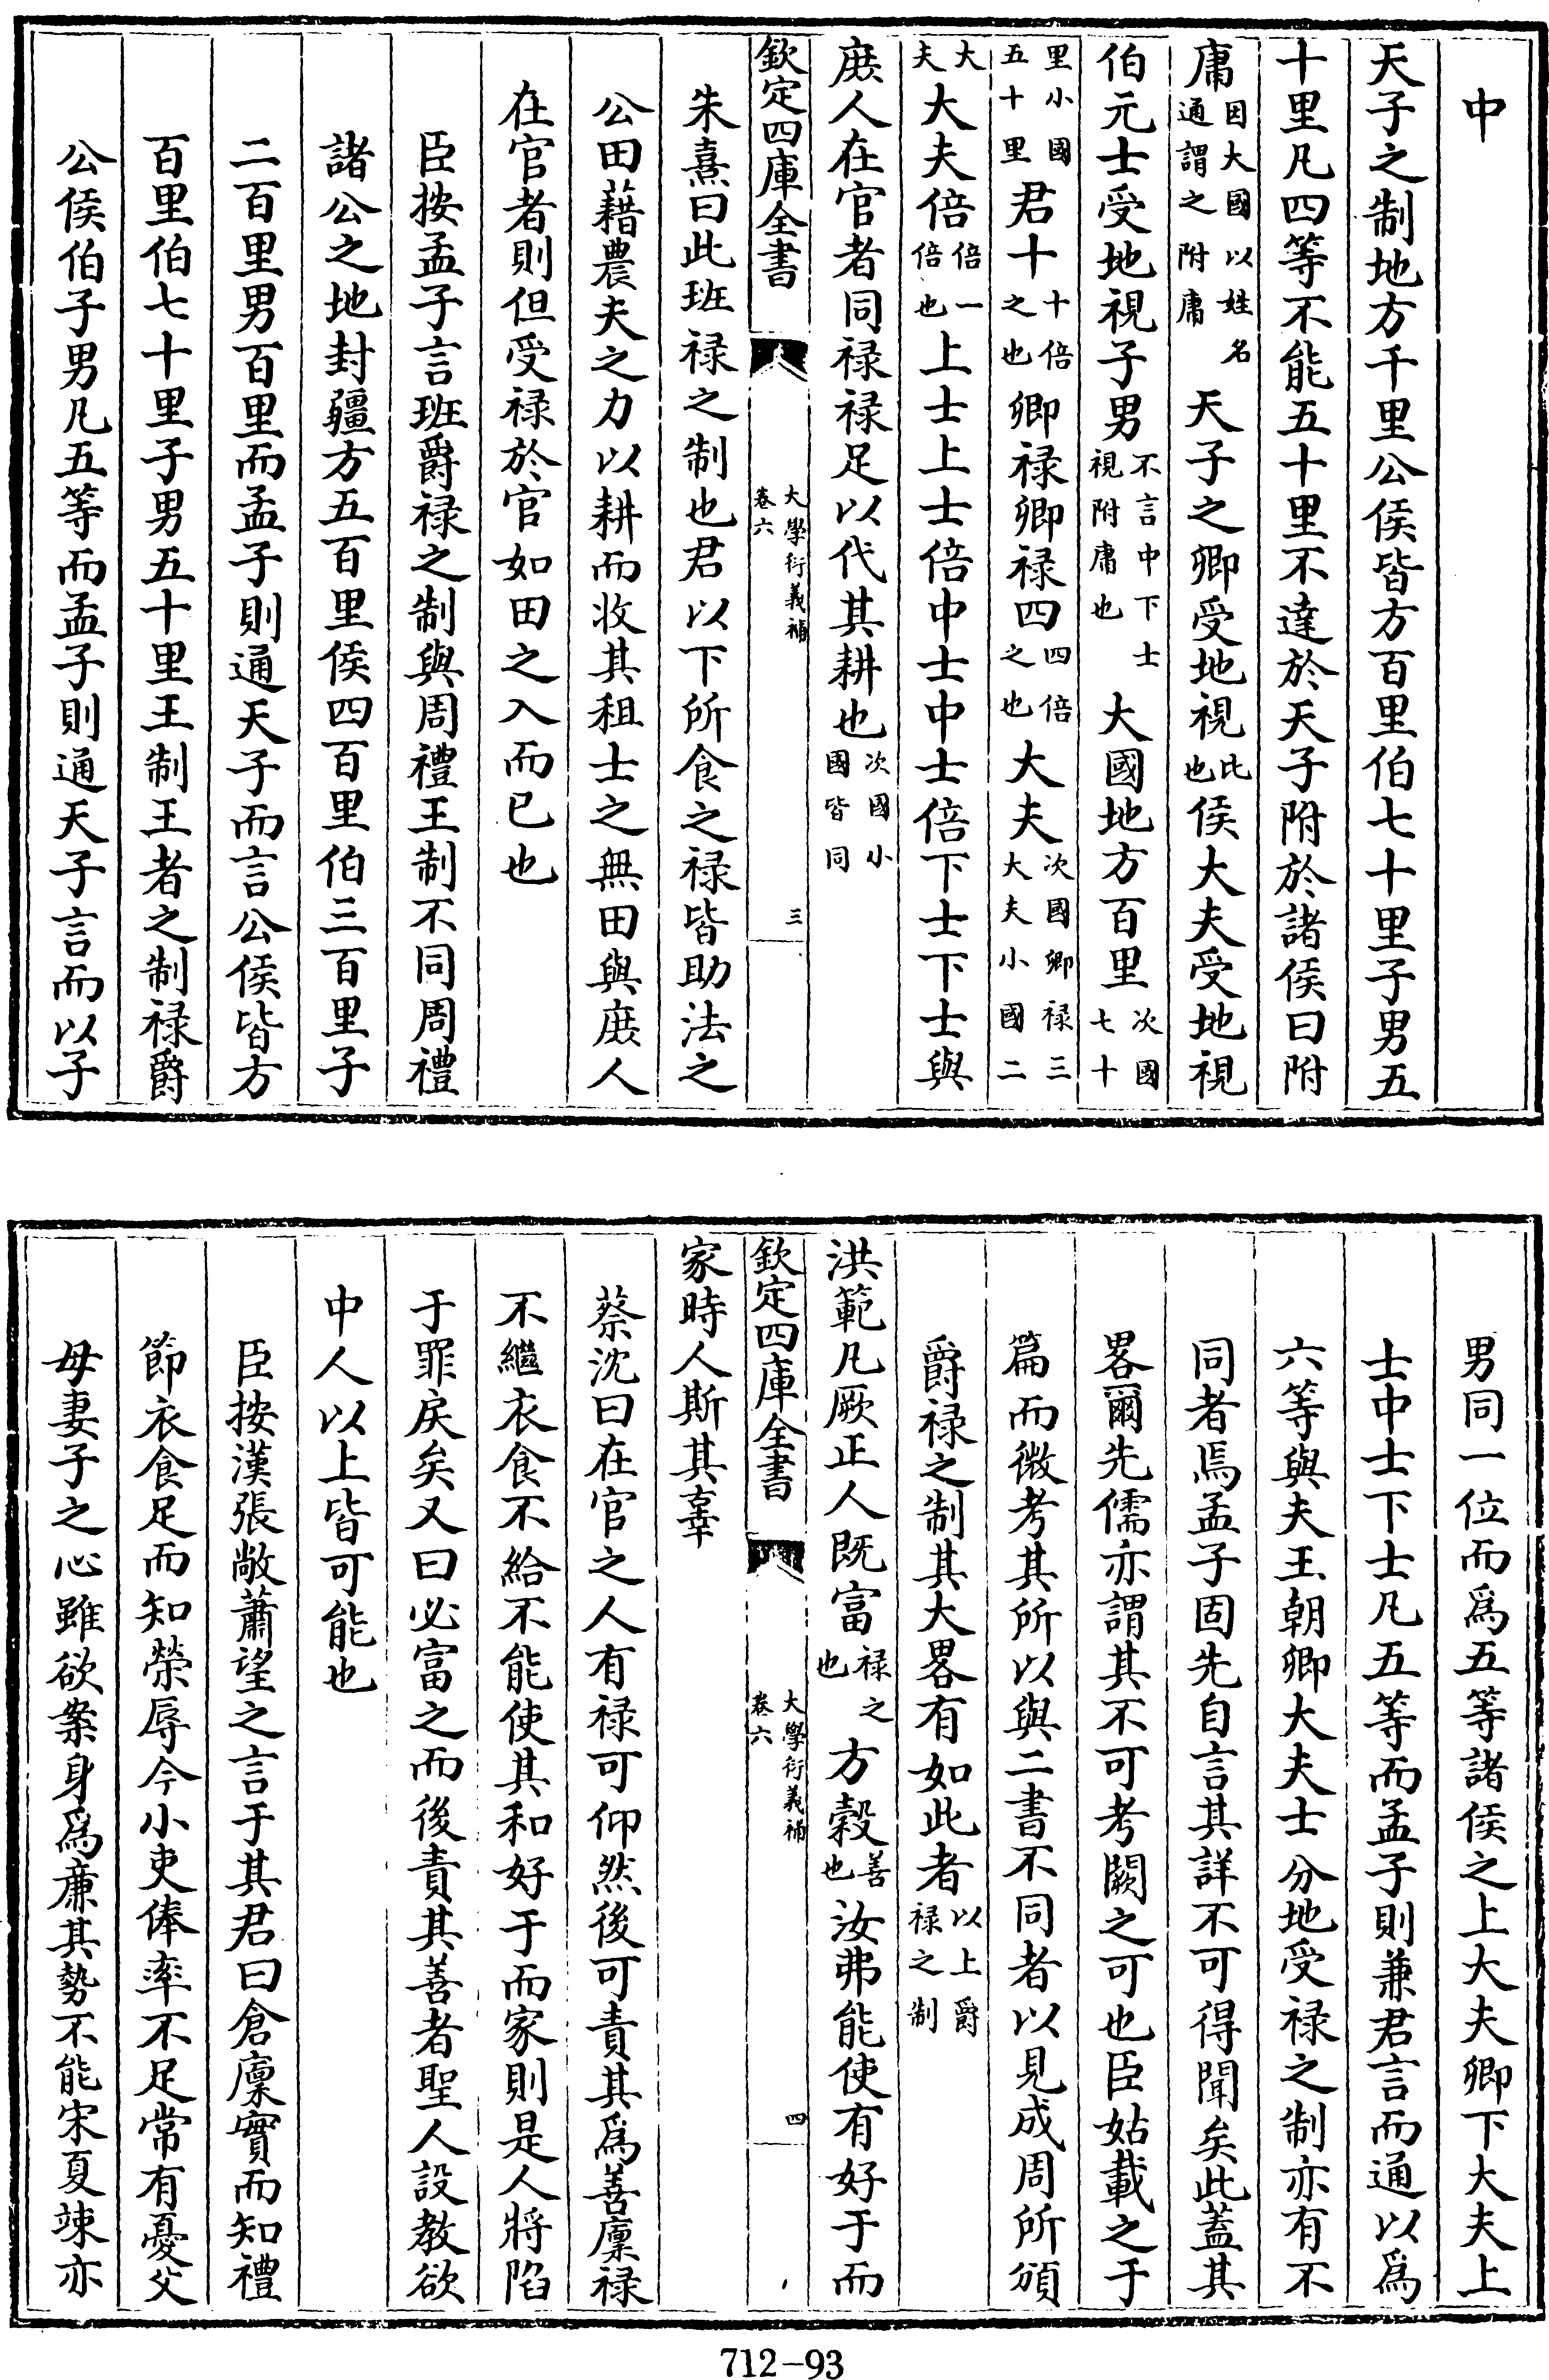 中
天子之制地方千里公侯皆方百里伯七十里子男五
十里凡四等不能五十里不達於天子附於諸侯曰附
庸因大國以姓名通謂之附庸天子之卿受地視比也侯大夫受地視
伯元士受地視子男不言中下士視附庸也大國地方百里次國七十
里小國五十里君十十倍之也卿禄卿禄四四倍之也大夫次國卿禄三大夫小國二
大夫大夫倍倍一倍也上士上士倍中士中士倍下士下士與
庶人在官者同禄禄足以代其耕也次國小國皆同
欽定四庫全書 大學衍義補 卷六 三
朱熹曰此班禄之制也君以下所食之禄皆助法之
公田藉農夫之力以耕而收其租士之無田與庶人
在官者則但受禄於官如田之入而已也
臣按孟子言班爵禄之制與周禮王制不同周禮
諸公之地封疆方五百里侯四百里伯三百里子
二百里男百里而孟子則通天子而言公侯皆方
百里伯七十里子男五十里王制王者之制禄爵
公侯伯子男凡五等而孟子則通天子言而以子
男同一位而爲五等諸侯之上大夫卿下大夫上
士中士下士凡五等而孟子則兼君言而通以爲
六等與夫王朝卿大夫士分地受禄之制亦有不
同者焉孟子固先自言其詳不可得聞矣此蓋其
畧爾先儒亦謂其不可考闕之可也臣姑載之于
篇而微考其所以與二書不同者以見成周所頒
爵禄之制其大畧有如此者以上爵禄之制
洪範凡厥正人既富禄之也方穀善也汝弗能使有好于而
欽定四庫全書 大學衍義補 卷六 四
家時人斯其辜
蔡沈曰在官之人有禄可仰然後可責其爲善廩禄
不繼衣食不給不能使其和好于而家則是人將陷
于罪戾矣又曰必富之而後責其善者聖人設教欲
中人以上皆可能也
臣按漢張敞蕭望之言于其君曰倉廩實而知禮
節衣食足而知榮辱今小吏俸率不足常有憂父
母妻子之心雖欲㓗身爲廉其勢不能宋夏竦亦
712-93